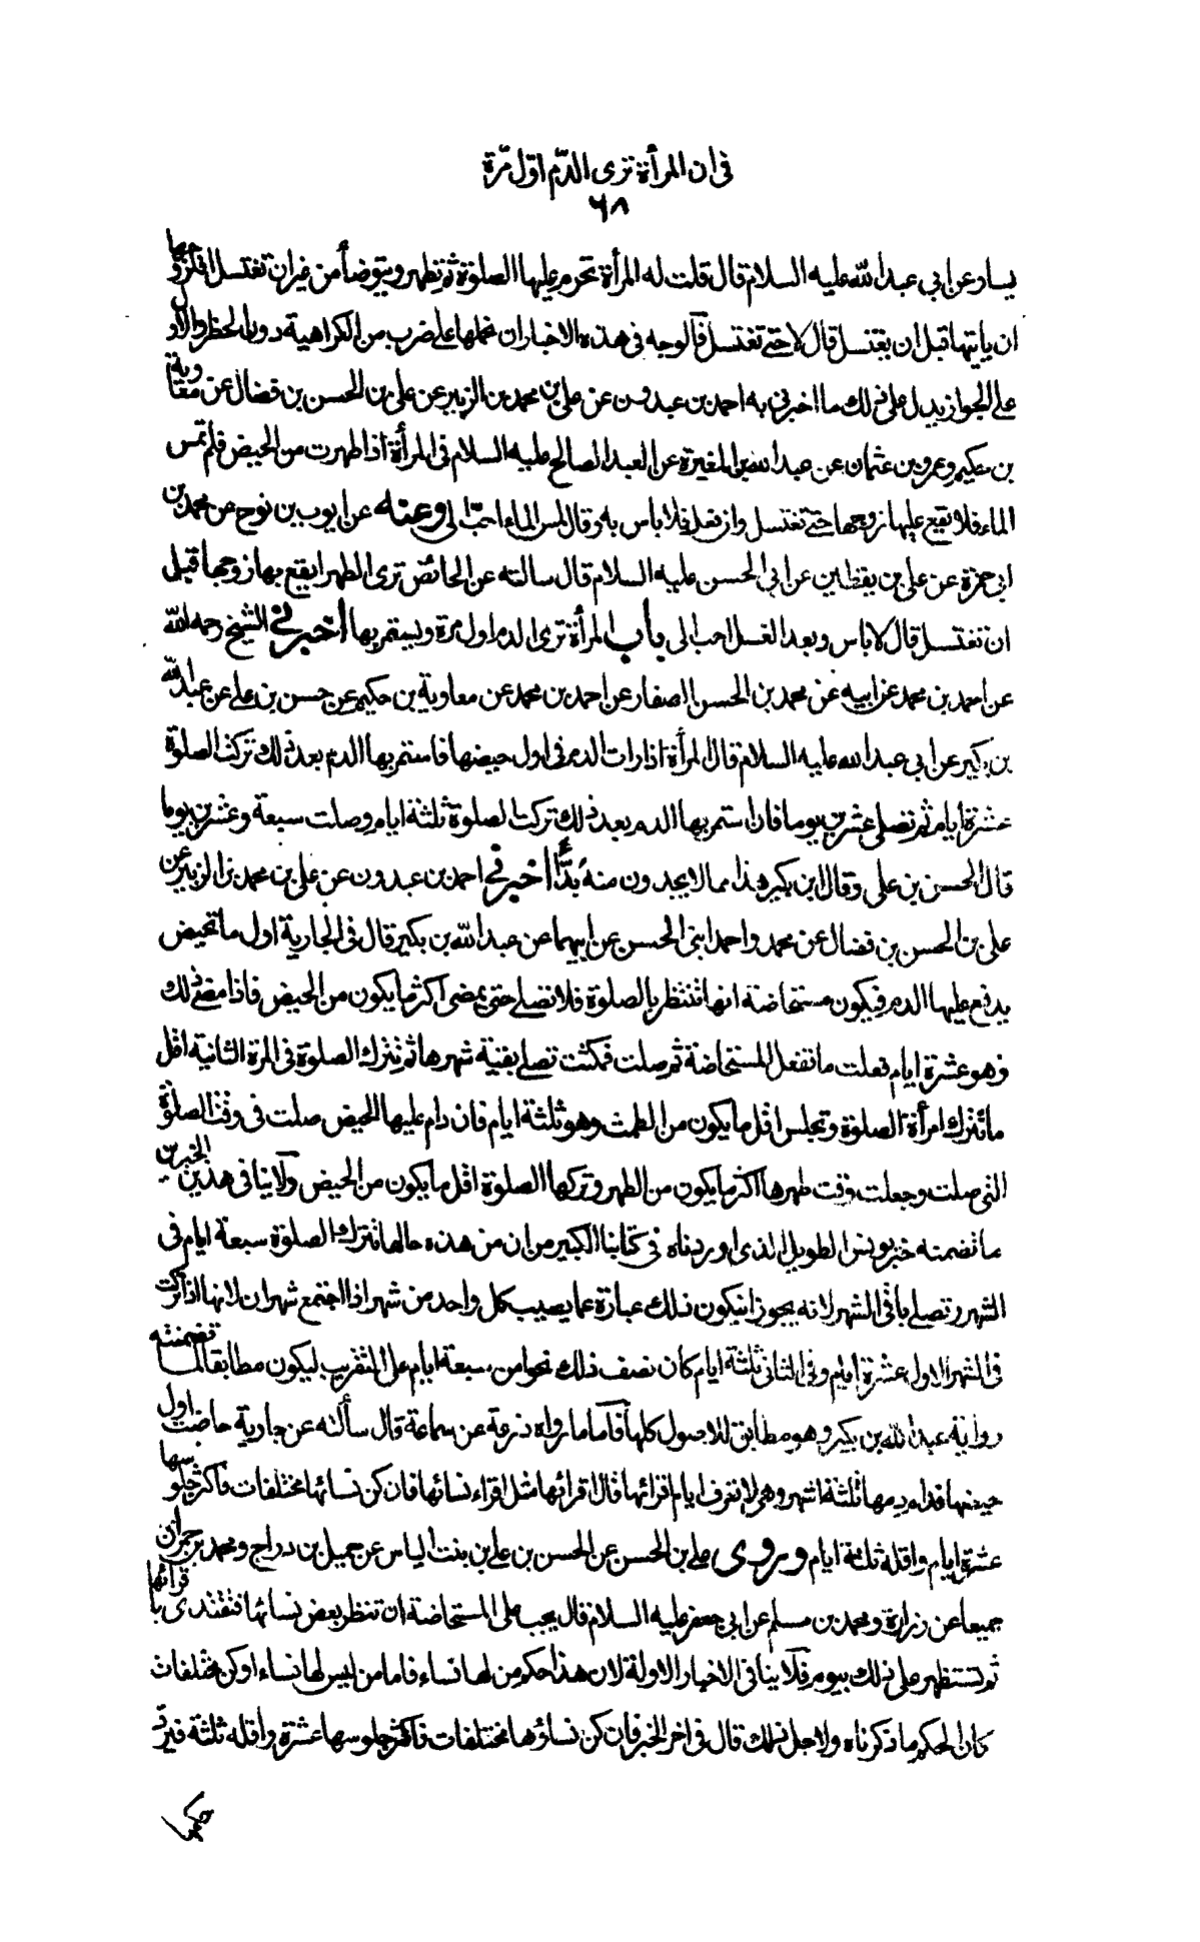 في ان المرأة ترى الدّم اوّل مرّة
٦٨
يسار عن ابي عبد الله عليه السلام قال قلت له المرأة تحرم عليها الصلوة ثم تطهر ويتوضأ من غير ان تغتسل افلزوجها
ان ياتيها قبل ان يغتسل قال لا حتى تغتسل فآلوجه في هذه الاخبار ان نحملها على ضرب من الكراهية دون الحظر والاول
على الجواز يدل على ذلك ما اخبرني به احمد بن عبدون عن علي بن محمد بن الزبير عن علي بن الحسن بن فضال عن معاوية
بن حكيم وعمرو بن عثمان عن عبد الله بن المغيرة عن العبد الصالح عليه السلام في المرأة اذا طهرت من الحيض فلم تمس
الماء فلا يقع عليها زوجها حتى تغتسل وان فعل فلا باس به وقال لمس الماء احبّ الي وعنه عن ايوب بن نوح عن محمد بن
ابي حمزة عن علي بن يقطين عن ابي الحسن عليه السلام قال سالته عن الحائض ترى الطهر ايقع بها زوجها قبل
ان تغتسل قال لا باس وبعد الغسل احب الي باب المرأة ترى الدم اول مرة ويستمر بها اخبرني الشيخ رحمه الله
عن احمد بن محمد عن ابيه عن محمد بن الحسن الصفار عن احمد بن محمد عن معاوية بن حكيم عن حسن بن علي عن عبد الله
بن بكير عن ابي عبد الله عليه السلام قال المرأة اذا رات الدم في اول حيضها فاستمر بها الدم بعد ذلك تركت الصلوة
عشرة ايام ثم تصلي عشرين يوما فان استمر بها الدم بعد ذلك تركت الصلوة ثلثة ايام وصلت سبعة وعشرين يوما
قال الحسن بن علي وقال ابن بكير هذا مما لا يجدون منه بدّا اخبرني احمد بن عبدون عن علي بن محمد بن الزبير عن
علي بن الحسن بن فضال عن محمد واحمد ابني الحسن عن ابيهما عن عبد الله بن بكير قال في الجارية اول ما تحيض
يدفع عليها الدم فيكون مستحاضة انها تنتظر بالصلوة فلا تصلي حتى يمضي اكثر ما يكون من الحيض فاذا مضى ذلك
وهو عشرة ايام فعلت ما تفعل المستحاضة ثم صلت فمكثت تصلي بقية شهرها ثم تترك الصلوة في المرة الثانية اقل
ما تترك امرأة الصلوة وتجلس اقل ما يكون من الطمث وهو ثلثة ايام فان دام عليها الحيض صلت في وقت الصلوة
التي صلت وجعلت وقت طهرها اكثر ما يكون من الطهر وتركها الصلوة اقل ما يكون من الحيض ولا ينافي هذين الخبرين
ما تضمنه خبر يونس الطويل الذي اوردناه في كتابنا الكبير من ان من هذه حالها تترك الصلوة سبعة ايام في
الشهر وتصلي باقي الشهر لانه يجوز ان يكون ذلك عبارة عما يصيب كل واحد من شهر اذا اجتمع شهران لانها اذا تركت
في الشهر الاول عشرة ايام وفي الثاني ثلثة ايام كان نصف ذلك نحوا من سبعة ايام على التقريب ليكون مطابقا لما تضمنته
رواية عبد الله بن بكير وهو مطابق للاصول كلها فآما ما رواه زرعة عن سماعة قال سألته عن جارية حاضت اول
حيضها فدام دمها ثلثة اشهر وهي لا تعرف ايام اقرائها قال اقرائها مثل اقراء نسائها فان كن نسائها مختلفات فاكثر جلوسها
عشرة ايام واقله ثلثة ايام وروى علي بن الحسن عن الحسن بن علي بن بنت الياس عن جميل بن دراج ومحمد بن حمران
جميعا عن زرارة ومحمد بن مسلم عن ابي جعفر عليه السلام قال يجب على المستحاضة ان تنظر بعض نسائها فتقتدي باقرائها
ثم تستظهر على ذلك بيوم فلا ينافي الاخبار الاولة لان هذا حكم من لها نساء فاما من ليس لها نساء او كن مختلفات
كان الحكم ما ذكرناه ولاجل ذلك قال في اخر الخبر فان كن نساؤها مختلفات فاكثر جلوسها عشرة واقله ثلثة فيرد
حكمها